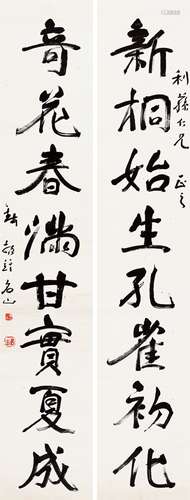 新桐始生孔雀初化
利蓀仁兄 正之
奇花春滿甘實夏成
錢名山